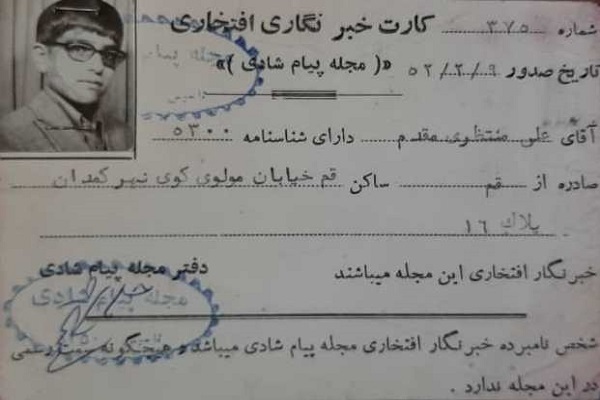 کارت خبر نگاری افتخاری شماره ۳۷۵
«( مجله پیام شادی )» تاریخ صدور ۵۲/۲/۹
آقای علی منتظری مقدم دارای شناسنامه ۵۳۰۰
صادره از قم ساکن قم خیابان مولوی کوی نهر کمدان
پلاك ۱۶
خبرنگار افتخاری این مجله میباشند دفتر مجله پیام شادی
مجله پیام شادی
شخص نامبرده خبرنگار افتخاری مجله پیام شادی میباشد و هیچگونه سمت رسمی
در این مجله ندارد .